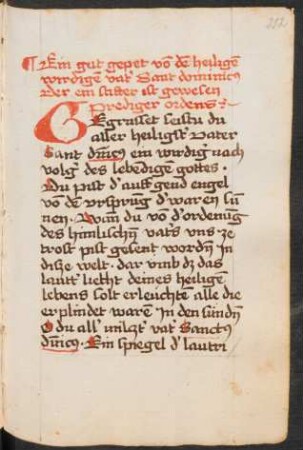 212
¶ Ein gut gepet vō dē heiligē
wirdigē vat' Sant dominic9
Der ein stifter ist gewesen
prediger ordens
Gegrusset seistu du
aller heiligst' Vater
Sant dn̄ic9 ein wirdig' nach
volg' des lebēdigē gottes ·
Du pist d' auffgend engel
vō dē vrsprūg d' waren sūn
nen · Wān du vō d' ordenūg
des himlischn̄ vat's vns ze
trost pist gesent wordn̄ In
dise welt · dar vmb dz das
lautt' liecht deines heiligē
lebens solt erleuchtē alle die
er plindet warē In den sündn̄
O du all' miltz' vat' Sanct9
dn̄ic9 · Ein spiegel d' lautri